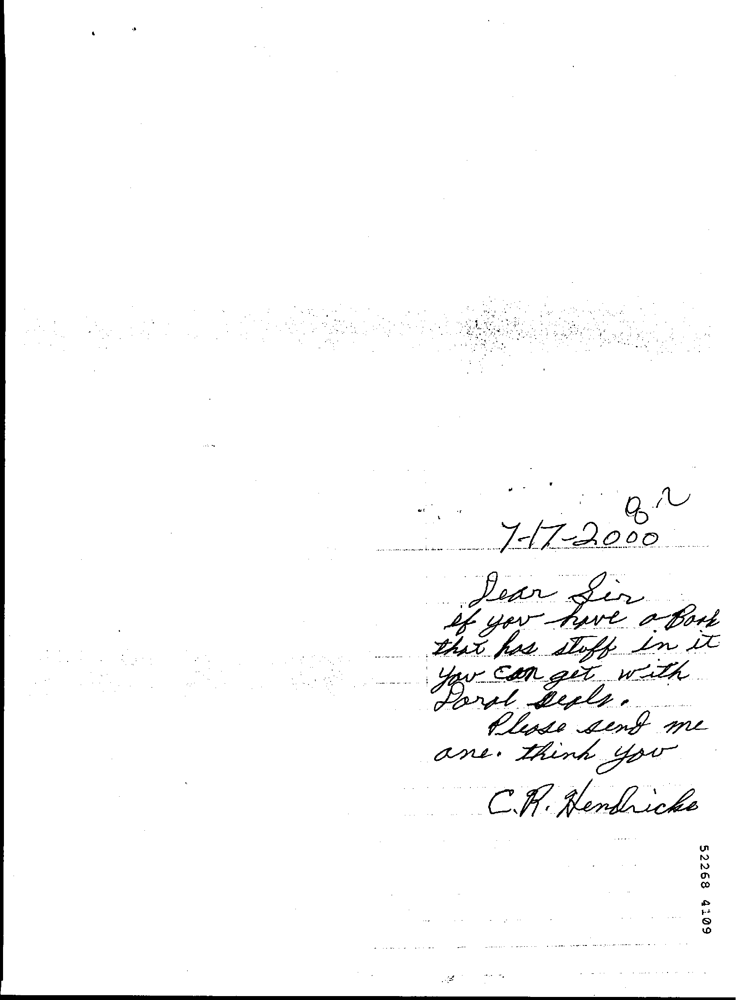 7-17-2000
Dear Sir
if you have a Book
that has stuff in it
you can get with
Doral seals.
Please send me
one. think you
C.R. Hendricks
52268 4109